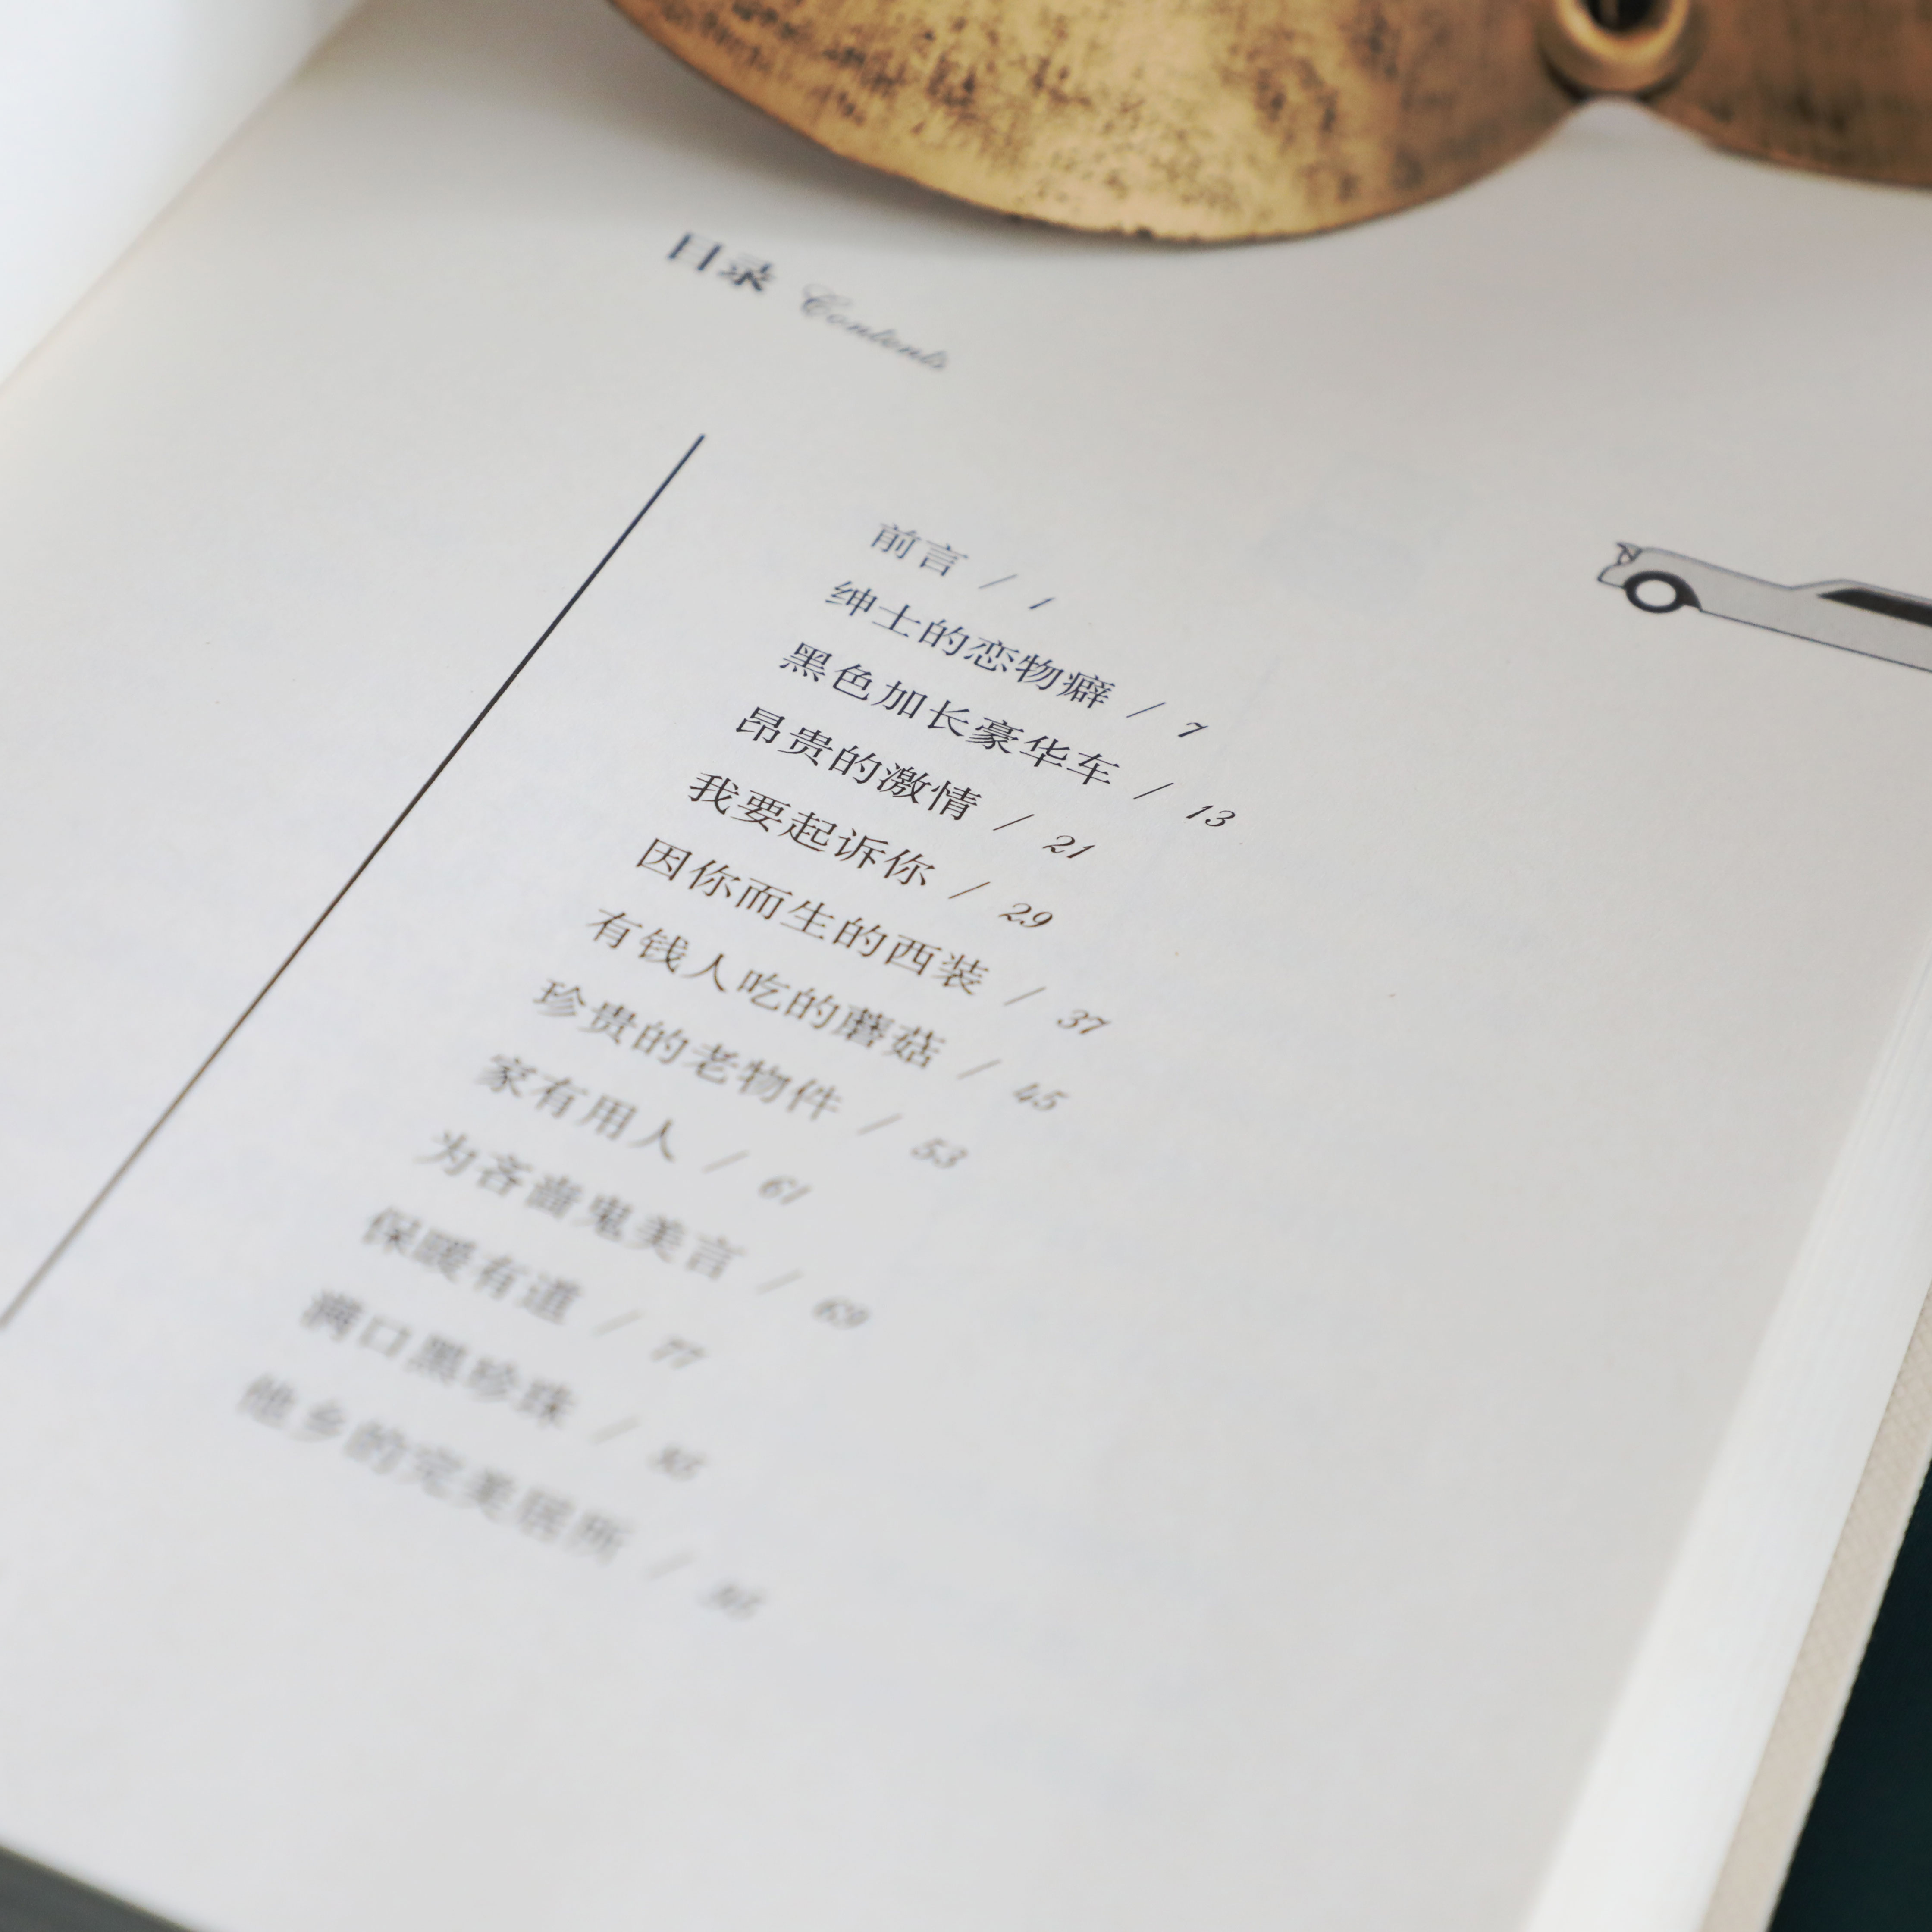 目录 Contents
前言 / 1
绅士的恋物癖 / 7
黑色加长豪华车 / 13
昂贵的激情 / 21
我要起诉你 / 29
因你而生的西装 / 37
有钱人吃的蘑菇 / 45
珍贵的老物件 / 53
家有用人 / 61
为吝啬鬼美言 / 69
保暖有道 / 77
满口黑珍珠 /
他乡的完美居所 /